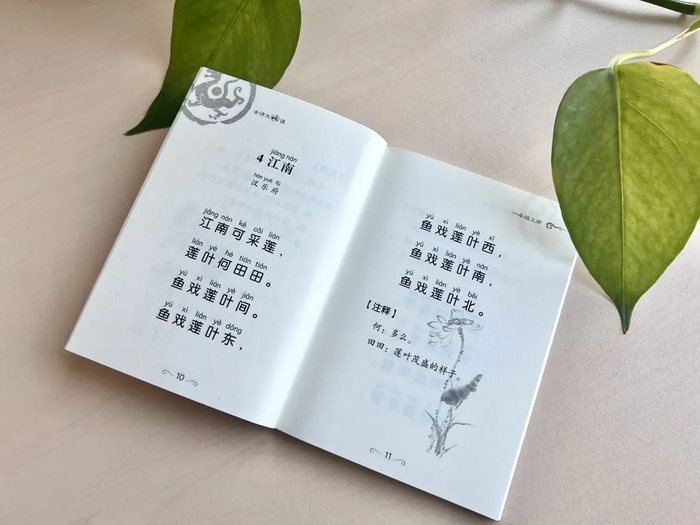 古诗文诵读
jiāng nán
4 江南
hàn yuè fǔ
汉乐府
jiāng nán kě cǎi lián
江南可采莲，
lián yè hé tián tián
莲叶何田田。
yú xì lián yè jiān
鱼戏莲叶间。
yú xì lián yè dōng
鱼戏莲叶东，
10
一年级上册
yú xì lián yè xī
鱼戏莲叶西，
yú xì lián yè nán
鱼戏莲叶南，
yú xì lián yè běi
鱼戏莲叶北。
【注释】
何：多么。
田田：莲叶茂盛的样子。
11